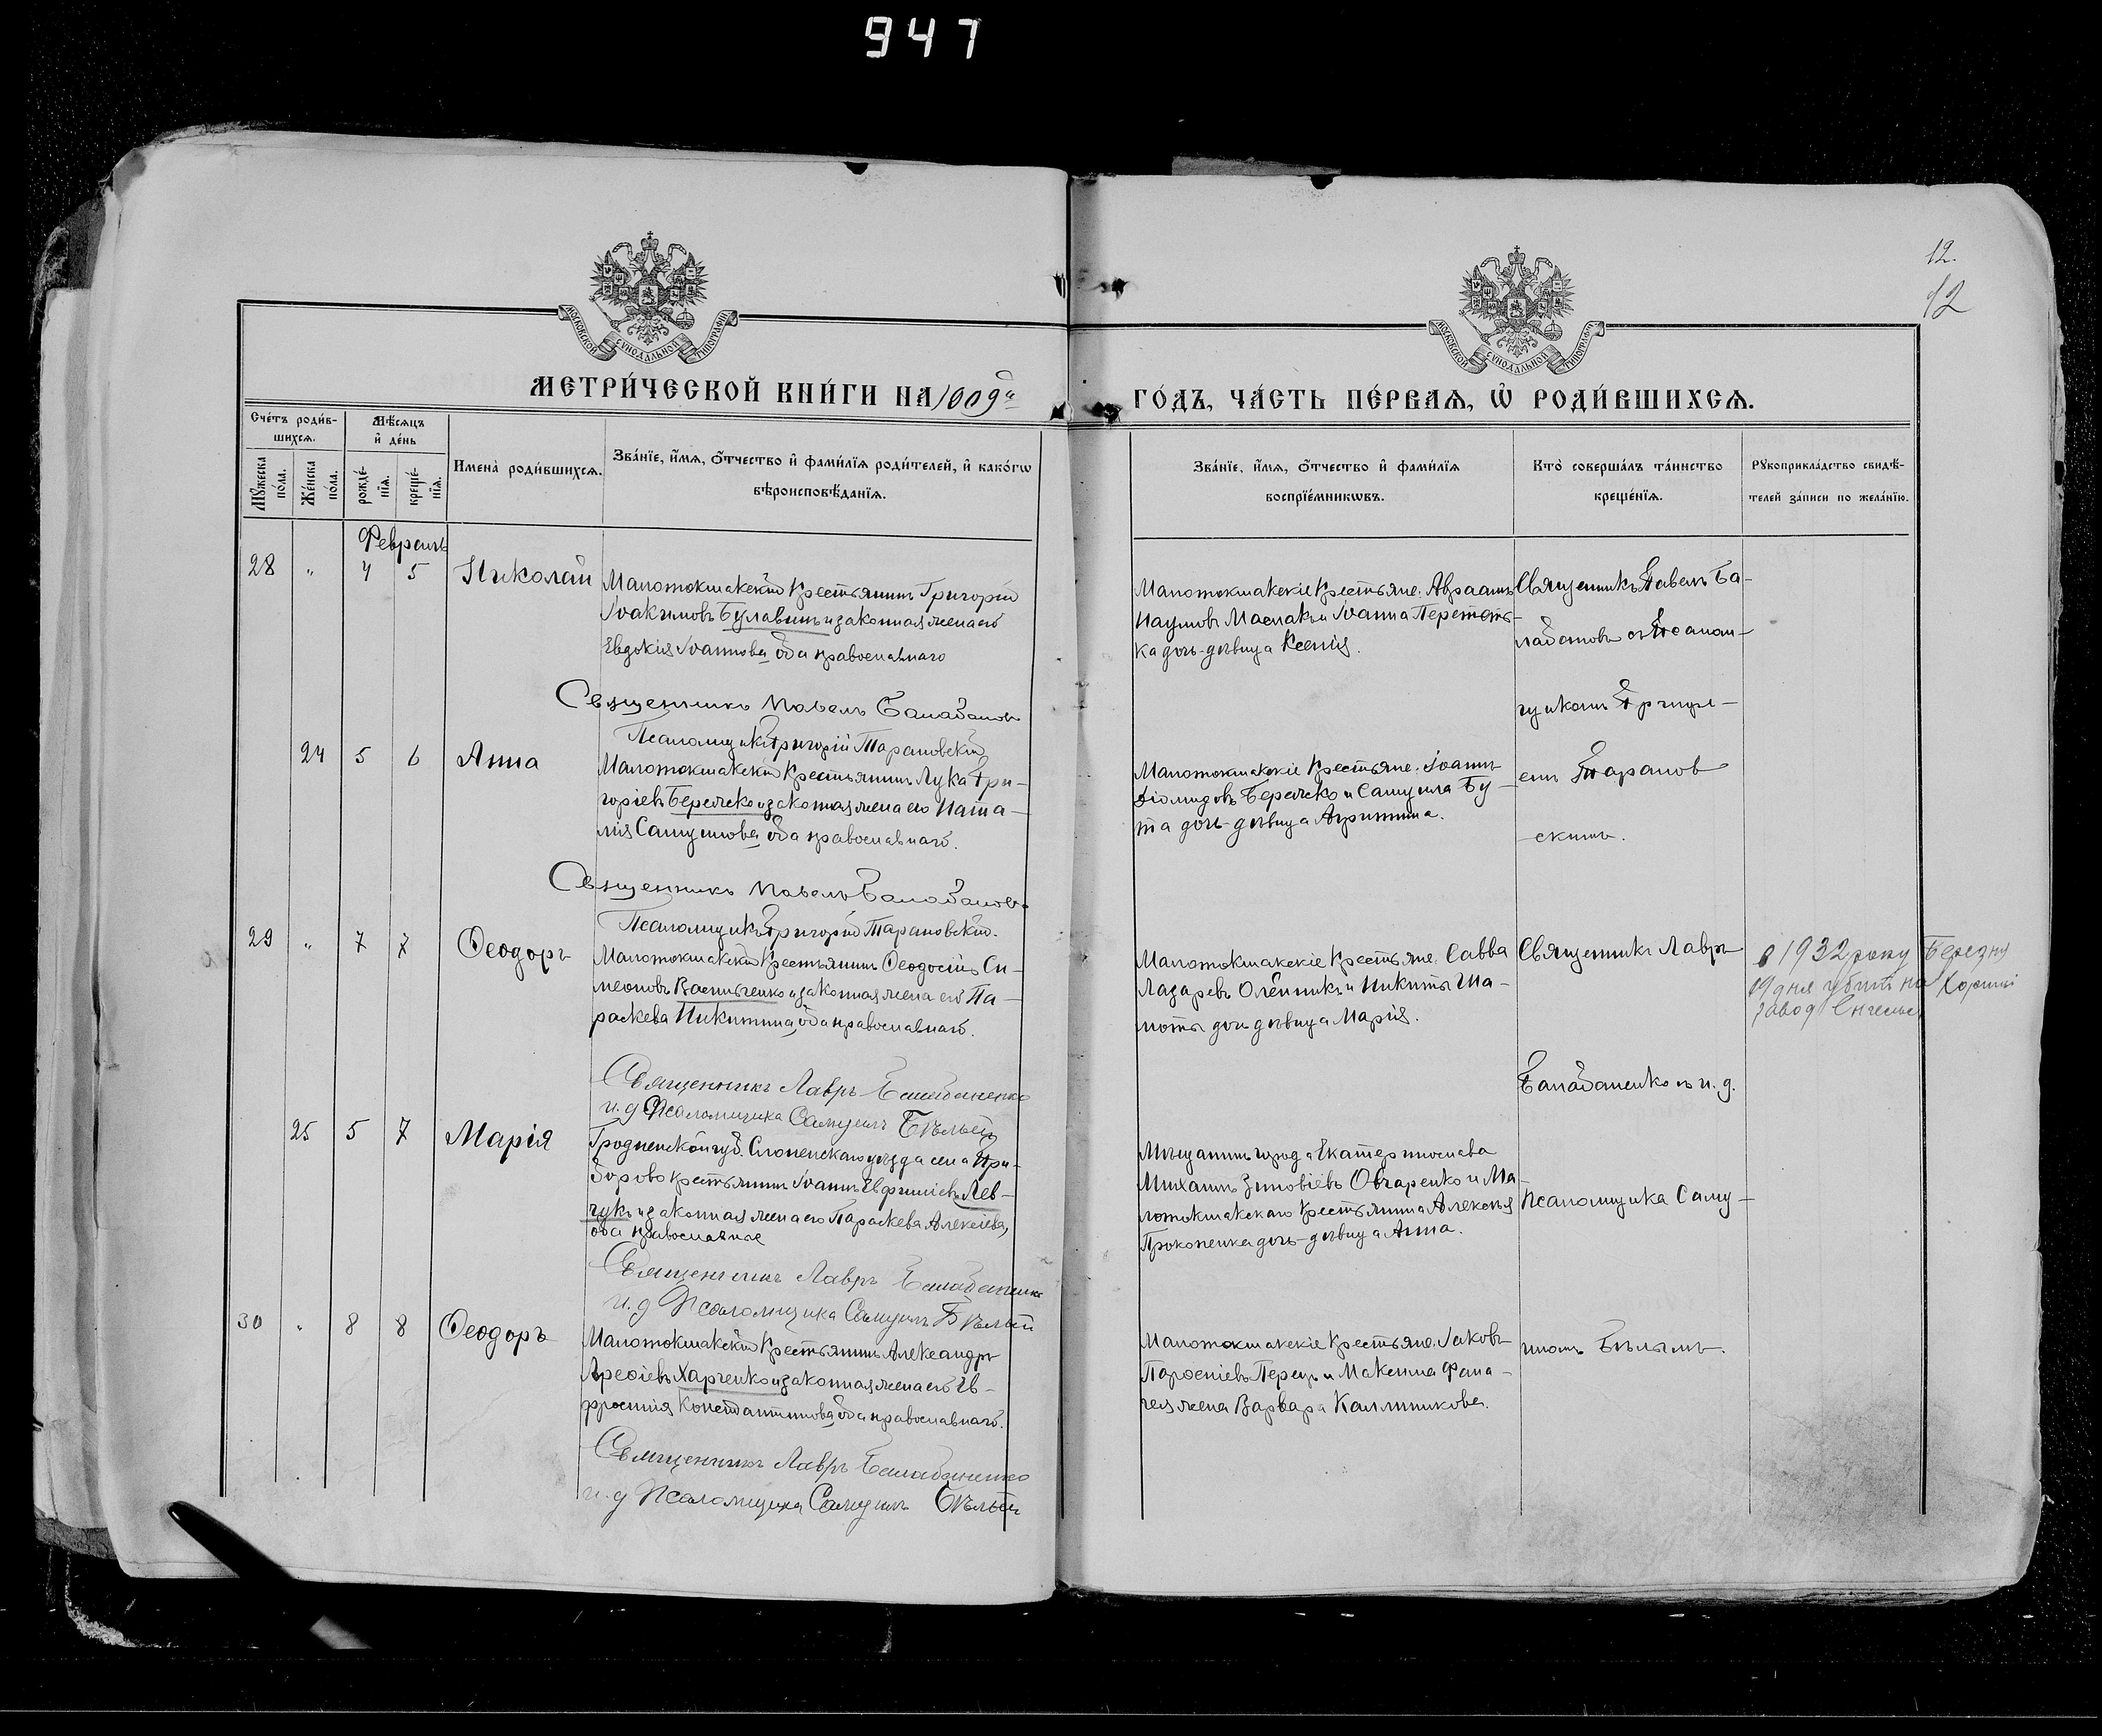 947
12.
12
МОСКОВСКОЙ СУНОДАЛЬНОЙ ТИПОГРАФІИ
МОСКОВСКОЙ СУНОДАЛЬНОЙ ТИПОГРАФІИ
МЕТРИ́ЧЕСКОЙ КНИ́ГИ НА 1909 ГО́ДЪ, ЧА́СТЬ ПЕ́РВАѦ, Ѡ҆ РОДИ́ВШИХСѦ.
Сче́тъ роди́в-
шихсѧ.
Мѣ́сѧцъ
и҆ де́нь
Мꙋ́жеска по́ла.
Же́нска по́ла.
рожде́-
нїѧ.
креще́-
нїѧ.
Имена̀ роди́вшихсѧ.
Зва́нїе, и҆́мѧ, ѻ҆́тчество и҆ фами́лїѧ роди́телей, и҆ како́гѡ
вѣроисповѣ́данїѧ.
Зва́нїе, и҆́мѧ, ѻ҆́тчество и҆ фами́лїѧ
воспрїе́мникѡвъ.
Кто̀ соверша́лъ та́инство
креще́нїѧ.
Рꙋкоприкла́дство свидѣ́-
телей за́писи по жела́нїю.
Февраль
28 " 4 5 Николай
Малотокмакскій Крестьянинъ Григорій
Іоакимовъ Булавинъ и законная жена его
Евдокія Іоаннова, оба православнаго
Малотокмакскіе Крестьяне: Авраамъ
Наумовъ Маслакъ и Іоанна Перетять-
ка дочь-дѣвица Ксенія.
Священникъ Павелъ Ба-
лабановъ съ Псалом-
щикомъ Григорі-
емъ Таранов
скимъ.
Священникъ Павелъ Балабановъ
Псаломщикъ Григорій Тарановскій
24 5 6 Анна
Малотокмакскій Крестьянинъ Лука Гри-
горіевъ Бережко и законная жена его Ната-
лія Самуилова, оба православнаго.
Малотокмакскіе Крестьяне: Іоаннъ
Діомидовъ Бережко и Самуила Бу-
та дочь-дѣвица Агриппина.
Священникъ Павелъ Балабановъ
Псаломщикъ Григорій Тарановскій.
29 " 7 7 Ѳеодоръ
Малотокмакскій Крестьянинъ Ѳеодосій Си-
меоновъ Васильченко и законная жена его Па-
раскева Никитина, оба православнаго.
Малотокмакскіе Крестьяне: Савва
Лазаревъ Олейникъ и Никиты Ша-
моты дочь дѣвица Марія.
Священникъ Лавръ
Балабаненко съ и. д.
Псаломщика Саму-
иломъ Бѣлымъ.
в 1932 року Березня
19 дня убит на
завод
Священникъ Лавръ Балабаненко
и. д. Псаломщика Самуилъ Бѣлый
25 5 7 Марія
Гродненской губ. Слонимскаго уѣзда села При-
борово крестьянинъ Іоаннъ Евфиміевъ Лев-
чукъ и законная жена его Параскева Алексіева,
оба православные
Мѣщанинъ города Екатеринослава
Михаилъ Зиновіевъ Овчаренко и Ма-
лотокмакскаго Крестьянина Алексѣя
Прокопенка дочь-дѣвица Анна.
Священникъ Лавръ Балабаненко
и. д. Псаломщика Самуилъ Бѣлый
30 " 8 8 Ѳеодоръ
Малотокмакскій Крестьянинъ Александръ
Арефіевъ Харченко и законная жена его Ев-
фросинія Константинова, оба православнаго.
Малотокмакскіе Крестьяне: Іаковъ
Парфеніевъ Перецъ и Максима
жена Варвара Каллиникова.
Священникъ Лавръ Балабаненко
и. д. Псаломщика Самуилъ Бѣлый